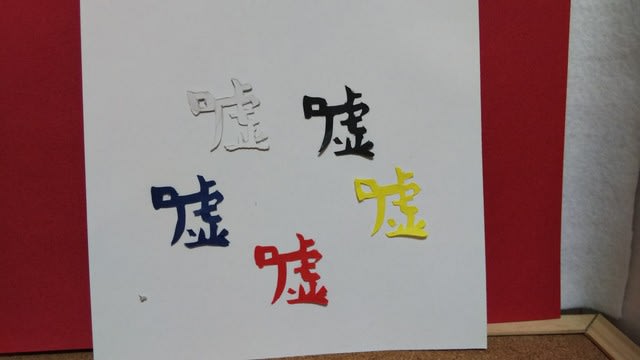 嘘 嘘
嘘 嘘
嘘